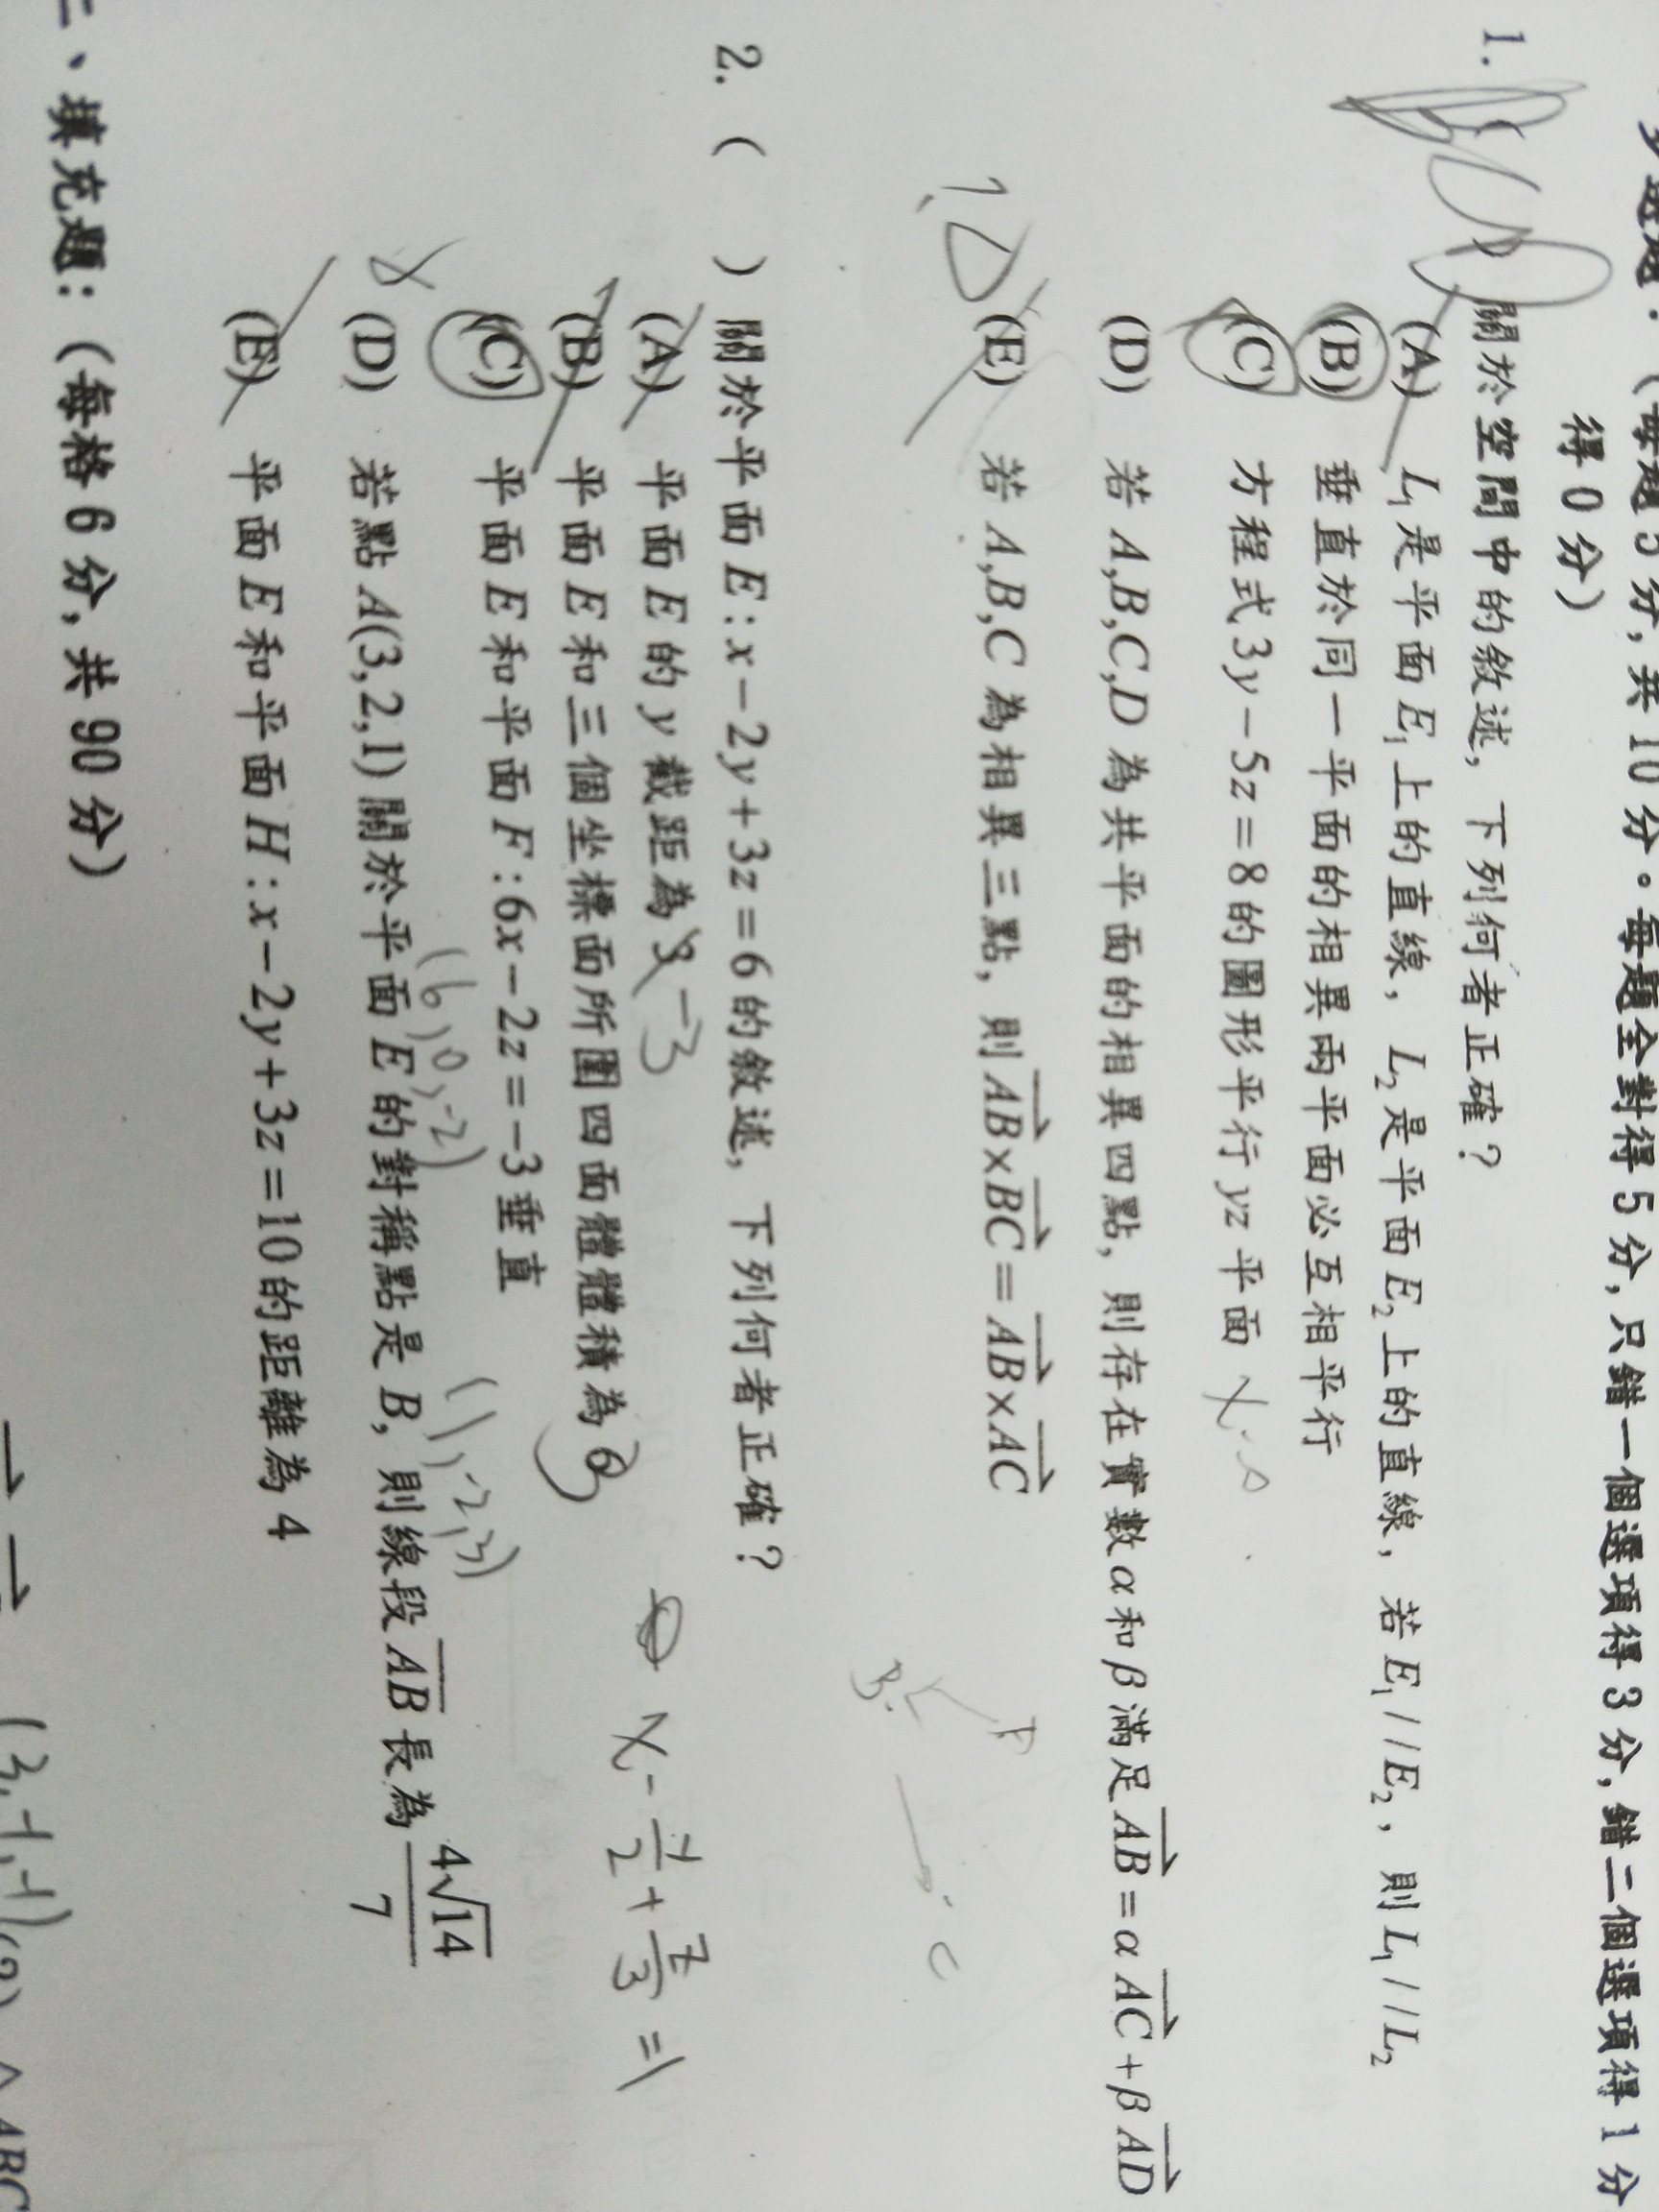 多選題:(每題5分,共10分。每題全對得5分,只錯一個選項得3分,錯二個選項得1分
得0分)
1. ( ) 關於空間中的敘述,下列何者正確?
(A) L₁是平面E₁上的直線,L₂是平面E₂上的直線,若E₁//E₂,則L₁//L₂
(B) 垂直於同一平面的相異兩平面必互相平行
(C) 方程式3y-5z=8的圖形平行yz平面
(D) 若A,B,C,D為共平面的相異四點,則存在實數α和β滿足AB=αAC+βAD
(E) 若A,B,C為相異三點,則AB×BC=AB×AC
B C
2. ( ) 關於平面E:x-2y+3z=6的敘述,下列何者正確?
(A) 平面E的y截距為3 -3
(B) 平面E和三個坐標面所圍四面體體積為6
x-y/2+z/3=1
(C) 平面E和平面F:6x-2z=-3垂直
(6,0,-2) (1,-2,3)
(D) 若點A(3,2,1)關於平面E的對稱點是B,則線段AB長為4√14/7
(E) 平面E和平面H:x-2y+3z=10的距離為4
二、填充題:(每格6分,共90分)
(3,-1,-1)
ABC